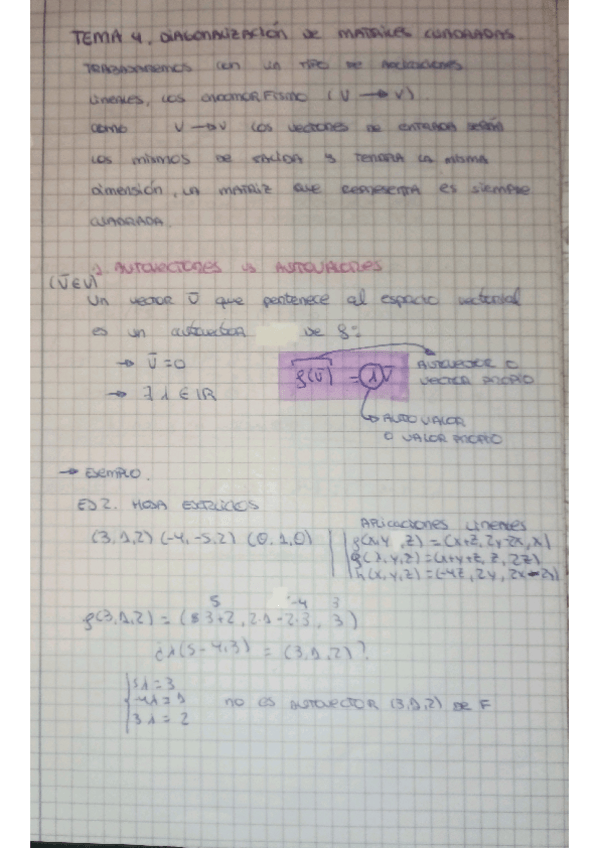 TEMA 4. DIAGONALIZACIÓN DE MATRICES CUADRADAS.
TRABAJAREMOS CON UN TIPO DE APLICACIONES
LINEALES, LOS ENDOMORFISMO (V → V).
COMO V → V LOS VECTORES DE ENTRADA SERÁN
LOS MISMOS DE SALIDA Y TENDRA LA MISMA
DIMENSIÓN, LA MATRIZ QUE REPRESENTA ES SIEMPRE
CUADRADA.
AUTOVECTORES VS AUTOVALORES
(V̄ ∈ V)
Un vector v̄ que pertenece al espacio vectorial
es un autovector de f:
→ v̄ = 0
f(v̄) = λv̄
AUTOVECTOR O
VECTOR PROPIO
→ ∃ λ ∈ IR
AUTOVALOR
O VALOR PROPIO
→ EJEMPLO.
EJ 2. HOJA EJERCICIOS
APLICACIONES LINEALES
(3,1,2) (-4,-5,2) (0,1,0)
f(x,y,z) = (x+z, 2y-2x, x)
g(x,y,z) = (x+y+z, z, 2z)
h(x,y,z) = (-4z, 2y, 2x-2y)
5 -4 3
f(3,1,2) = (3+2, 2·1-2·3, 3)
¿λ(5-4,3) = (3,1,2)?
5λ = 3
-4λ = 1
3λ = 2
NO ES AUTOVECTOR (3,1,2) DE F